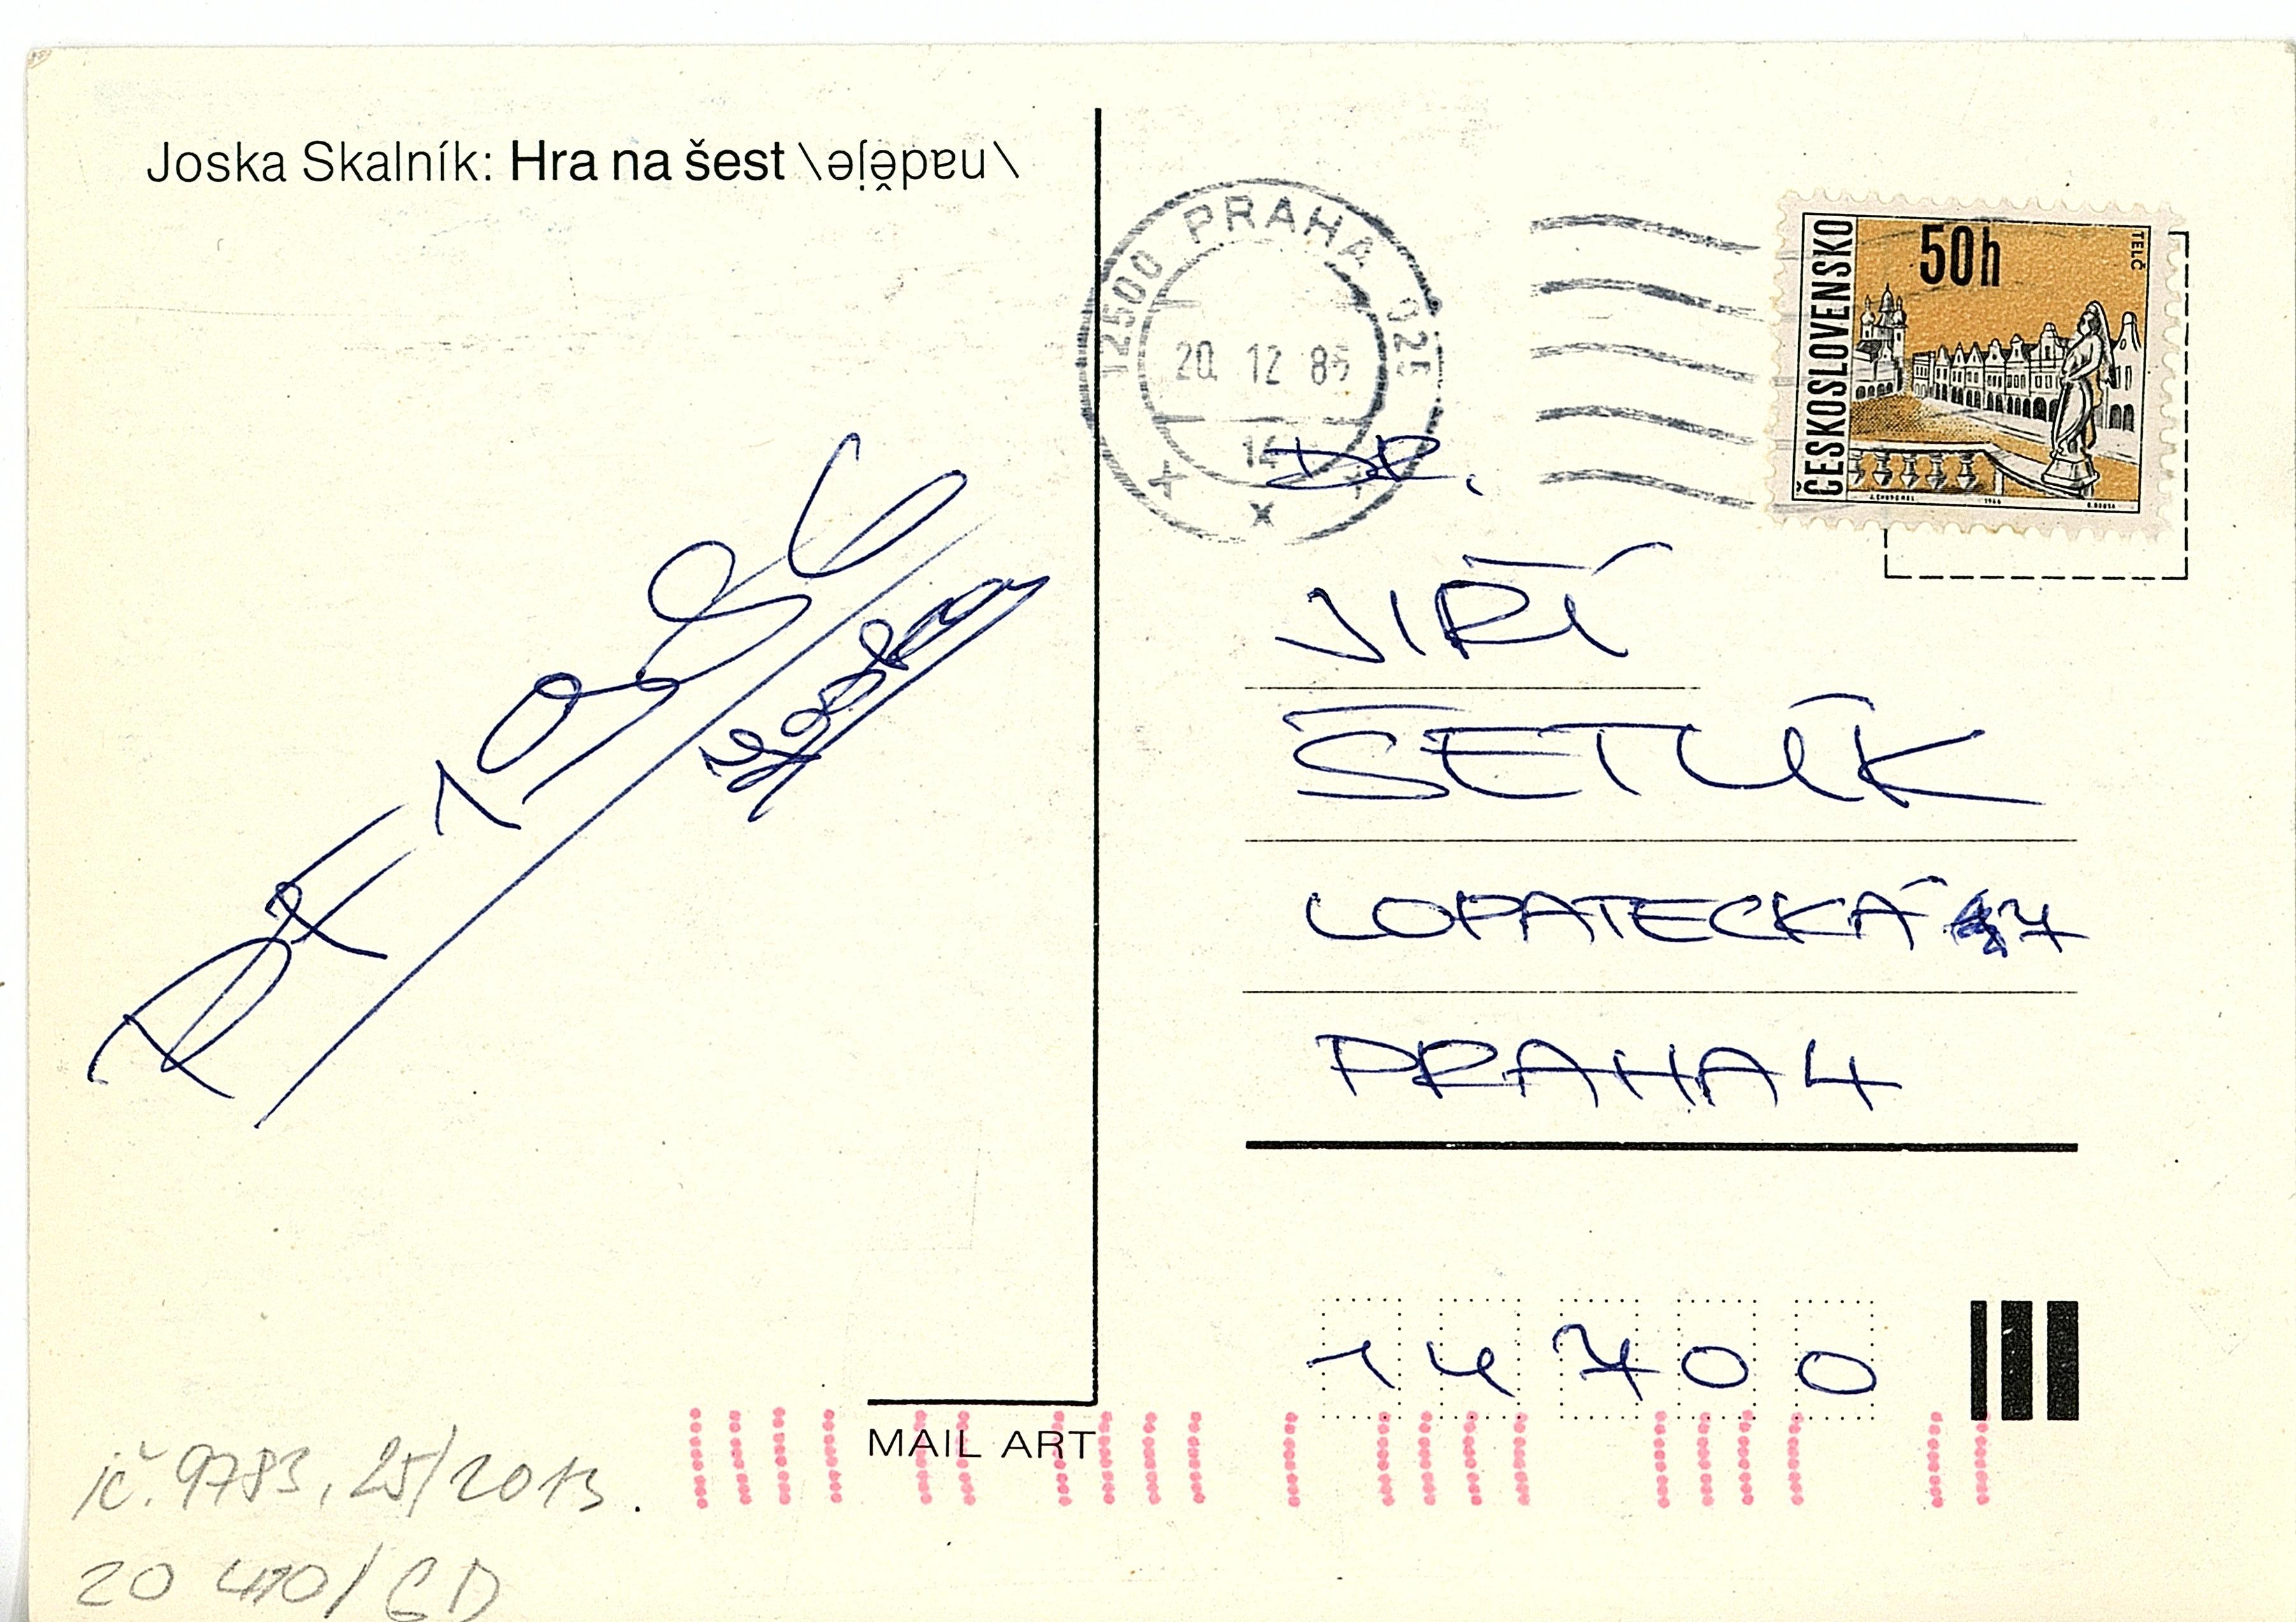 Joska Skalník: Hra na šest \naděje\
12500 PRAHA 025
20. 12 8
14
x x x
ČESKOSLOVENSKO
50h
TELČ
1966
PF 1986
DR.
JIŘÍ
ŠETLÍK
LOPATECKÁ 7
PRAHA 4
14700
MAIL ART
ič. 9783, 25/2013.
20 410/GD